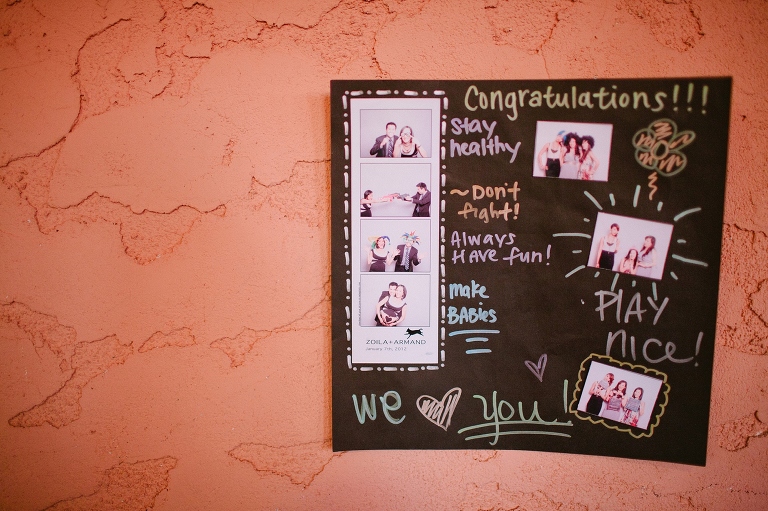 Congratulations!!!
Stay
healthy
~Don't
fight!
Always
Have fun!
make
BABies
PLAY
nice!
We you!
ZOILA+ARMAND
January 7th, 2012